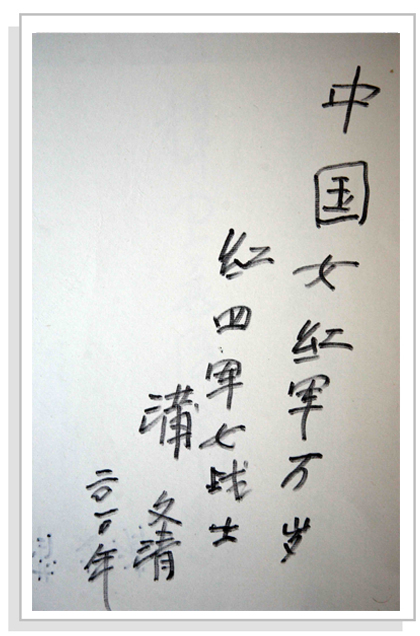 中国女红军万岁
红四军女战士
蒲文清
二〇一〇年